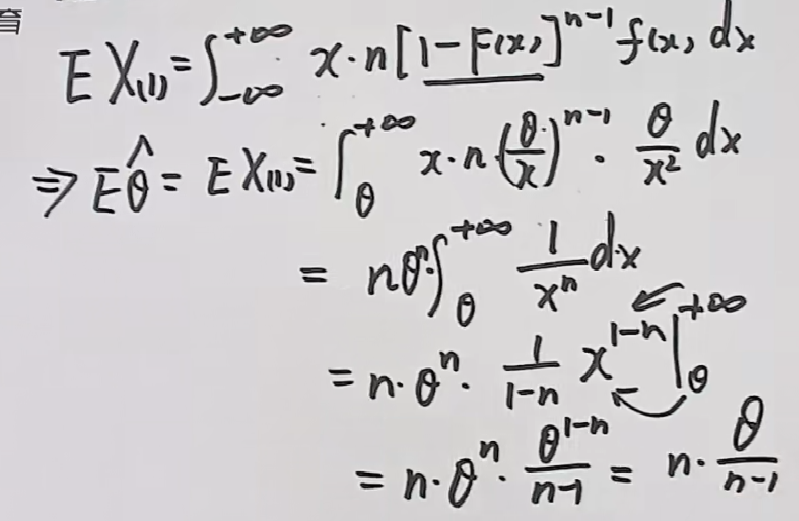 育
E X₍₁₎ = ∫_{-∞}^{+∞} x·n[1-F(x)]^{n-1} f(x) dx
⇒ E\hat{θ} = E X₍₁₎ = ∫_{θ}^{+∞} x·n·(θ/x)^{n-1} · θ/x² dx
= nθⁿ·∫_{θ}^{+∞} 1/xⁿ dx
= n·θⁿ· 1/(1-n) x^{1-n} |_{θ}^{+∞}
= n·θⁿ· θ^{1-n}/(n-1) = n· θ/(n-1)